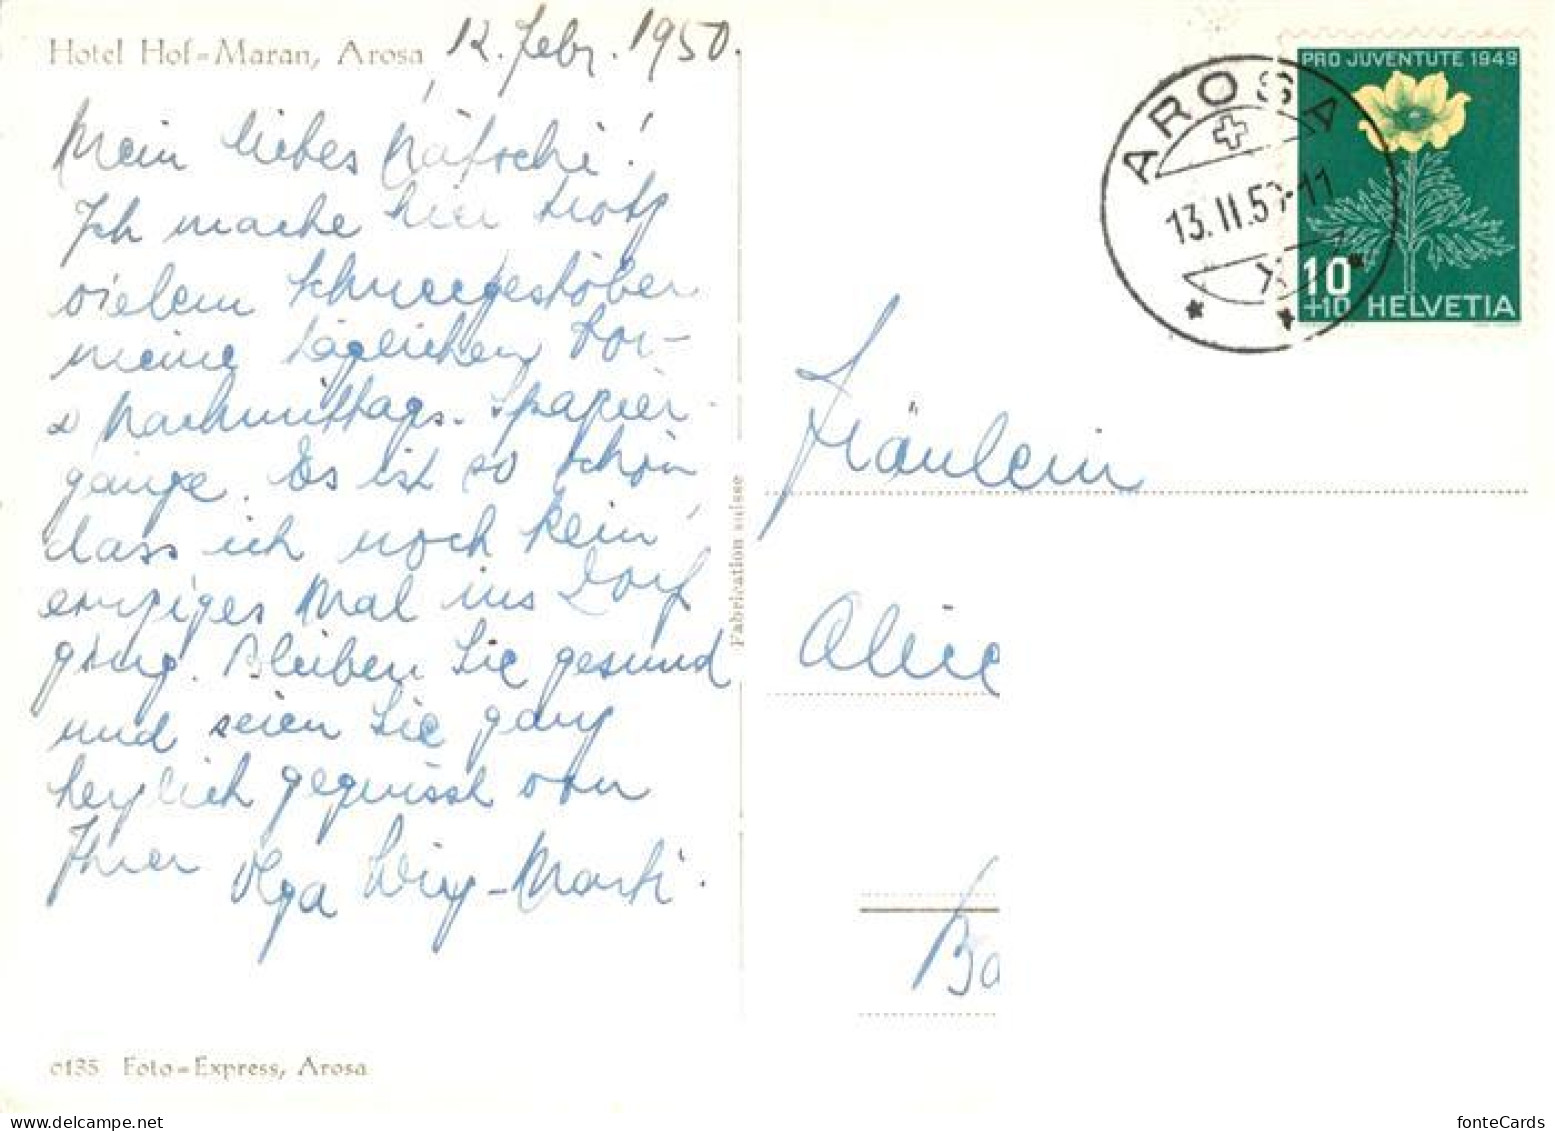 Hotel Hof=Maran, Arosa
12. Febr. 1950.
Mein liebes
Ich mache hier trotz
vielem Schneegestöber
meine täglichen Vor-
& Nachmittags-Spazier-
gänge. Es ist so schön
dass ich noch kein
einziges Mal ins Dorf
ging. Bleiben Sie gesund
und seien Sie ganz
herzlich gegrüsst von
Ihrer Olga -Marti.
c135 Foto=Express, Arosa
Fabrication suisse
AROSA
13. II. 50-11
PRO JUVENTUTE 1949
10
+10 HELVETIA
Fräulein
Alice
Ba
fonteCards